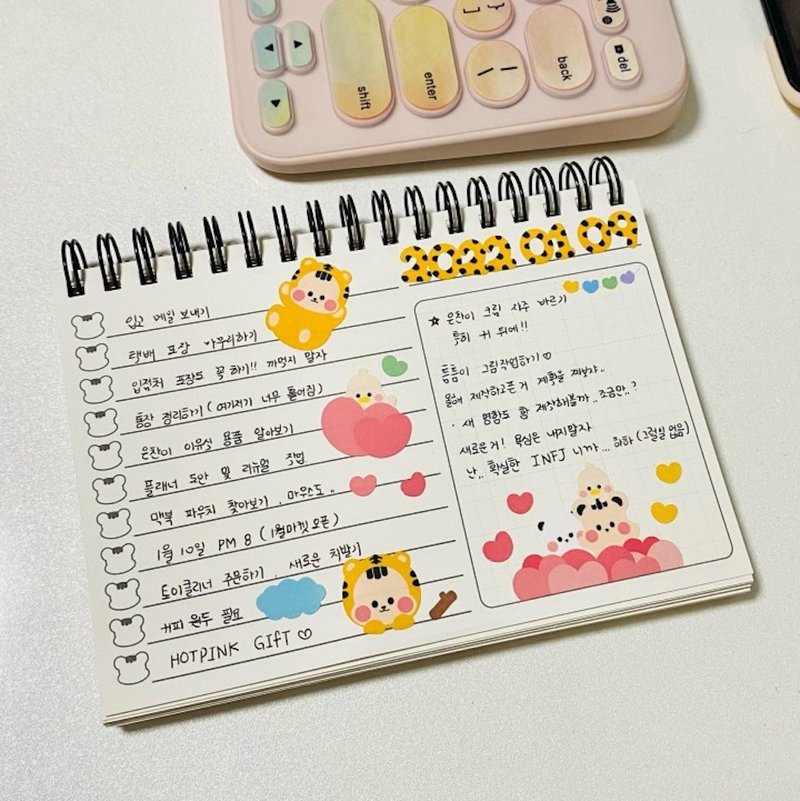 shift
enter
{ [
} ]
| \
back
del
2022 01 09
입고 메일 보내기
택배 포장 마무리하기
입점처 포장도 꼭 하기!! 까먹지 말자
통장 정리하기 (여기저기 너무 흩어짐)
은찬이 이유식 용품 알아보기
플래너 도안 및 리뉴얼 작업
맥북 파우치 찾아보기. 마우스도..
1월 10일 PM 8 (1월마켓오픈)
토이클리너 주문하기, 새로운 치발기
커피 원두 필요
HOTPINK GIFT ♡
☆ 은찬이 크림 자주 바르기
특히 귀 뒤에!!
틈틈이 그림작업하기♡
올해 제작하고픈거 계획을 짜보자..
· 새 명함도 함 제작해볼까..조금만..?
새로운거! 욕심은 내지말자
난.. 확실한 INFJ 니까... 하하 (그럴일 없음)